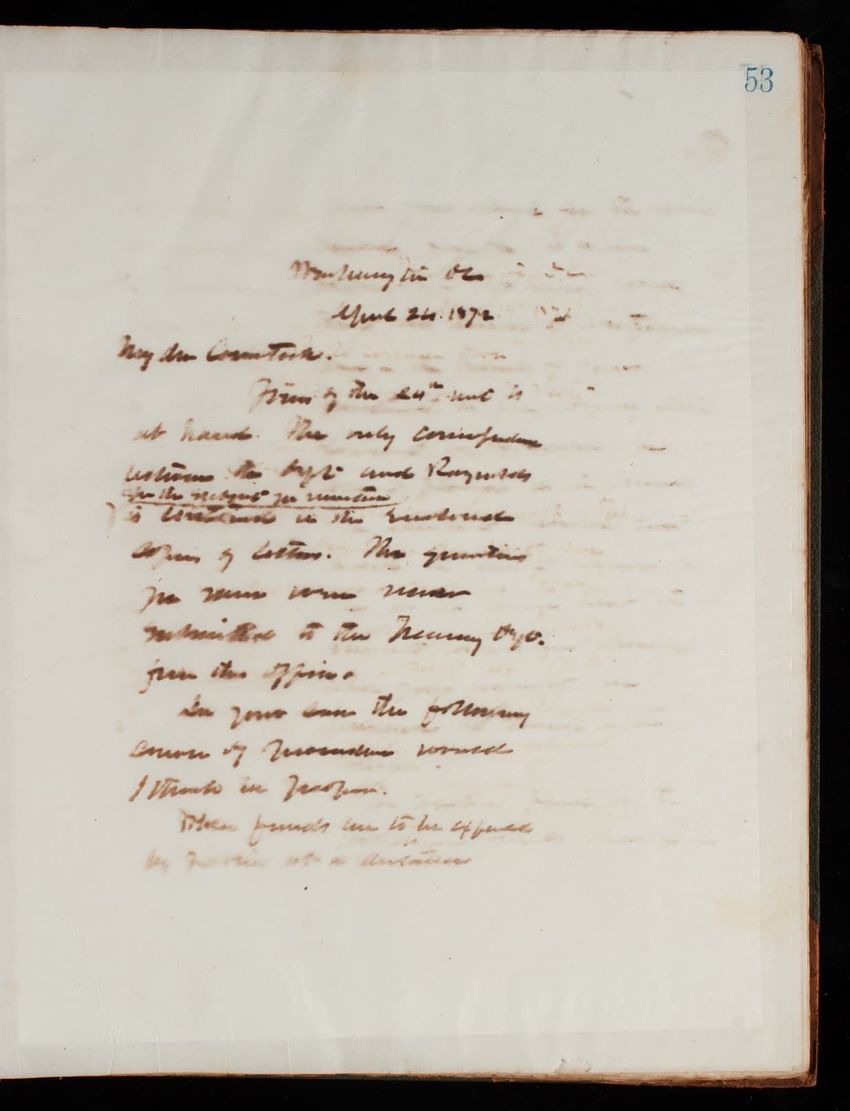 53
Washington DC
April 24. 1872
My dear Comstock.
Yours of the 24th inst is
at hand. The only correspondence
between the Dept and Reynolds
on the subject
is contained in the enclosed
copies of letters. The
were never
submitted to the Treasury Dept.
from this office.
In your case the following
course of procedure would
I think be proper.
When funds are to be expended
by at a distance